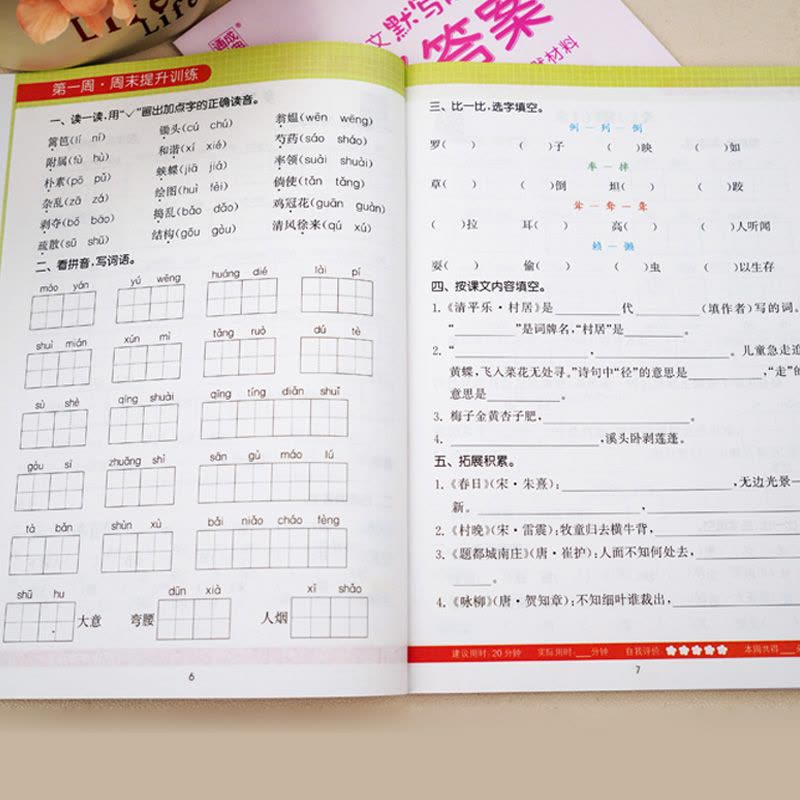 Life
Life
通成
文默写
答案
材料
第一周·周末提升训练
一、读一读,用“✓”画出加点字的正确读音。
篱笆(lí ní) 锄头(cú chú) 翁媪(wēn wēng)
附属(fù hù) 和谐(xí xié) 芍药(sáo sháo)
朴素(pō pǔ) 蛱蝶(jiā jiá) 率领(suài shuài)
杂乱(zā zá) 绘图(huì fèi) 倘使(tǎn tǎng)
剥夺(bō bāo) 捣乱(bǎo dǎo) 鸡冠花(guān guàn)
疏散(sū shū) 结构(gōu gòu) 清风徐来(qú xú)
二、看拼音,写词语。
máo yán yú wēng huáng dié lài pí
shuì mián xún mì tǎng ruò dú tè
sù shè qíng shuài qīng tíng diǎn shuǐ
gòu sī zhuāng shì sān gù máo lú
tà bǎn shùn xù bǎi niǎo cháo fèng
shū hu dūn xià xī shǎo
大意 弯腰 人烟
6
三、比一比,选字填空。
例—列—倒
罗( ) ( )子 ( )映 ( )如
率—拌
草( ) ( )倒 坦( ) ( )跤
耸—耷—聋
( )拉 耳( ) 高( ) ( )人听闻
赖—懒
耍( ) 偷( ) ( )虫 ( )以生存
四、按课文内容填空。
1.《清平乐·村居》是______代______(填作者)写的词。
“______”是词牌名,“村居”是______。
2.“______,______。儿童急走追
黄蝶,飞入菜花无处寻。”诗句中“径”的意思是______,“走”的
意思是______。
3. 梅子金黄杏子肥,______。
4. ______,溪头卧剥莲蓬。
五、拓展积累。
1.《春日》(宋·朱熹):______,无边光景一
新。
2.《村晚》(宋·雷震):牧童归去横牛背,______
3.《题都城南庄》(唐·崔护):人面不知何处去,______
______。
4.《咏柳》(唐·贺知章):不知细叶谁裁出,______
建议用时:20分钟 实际用时:___分钟 自我评价: 本周共得___
7